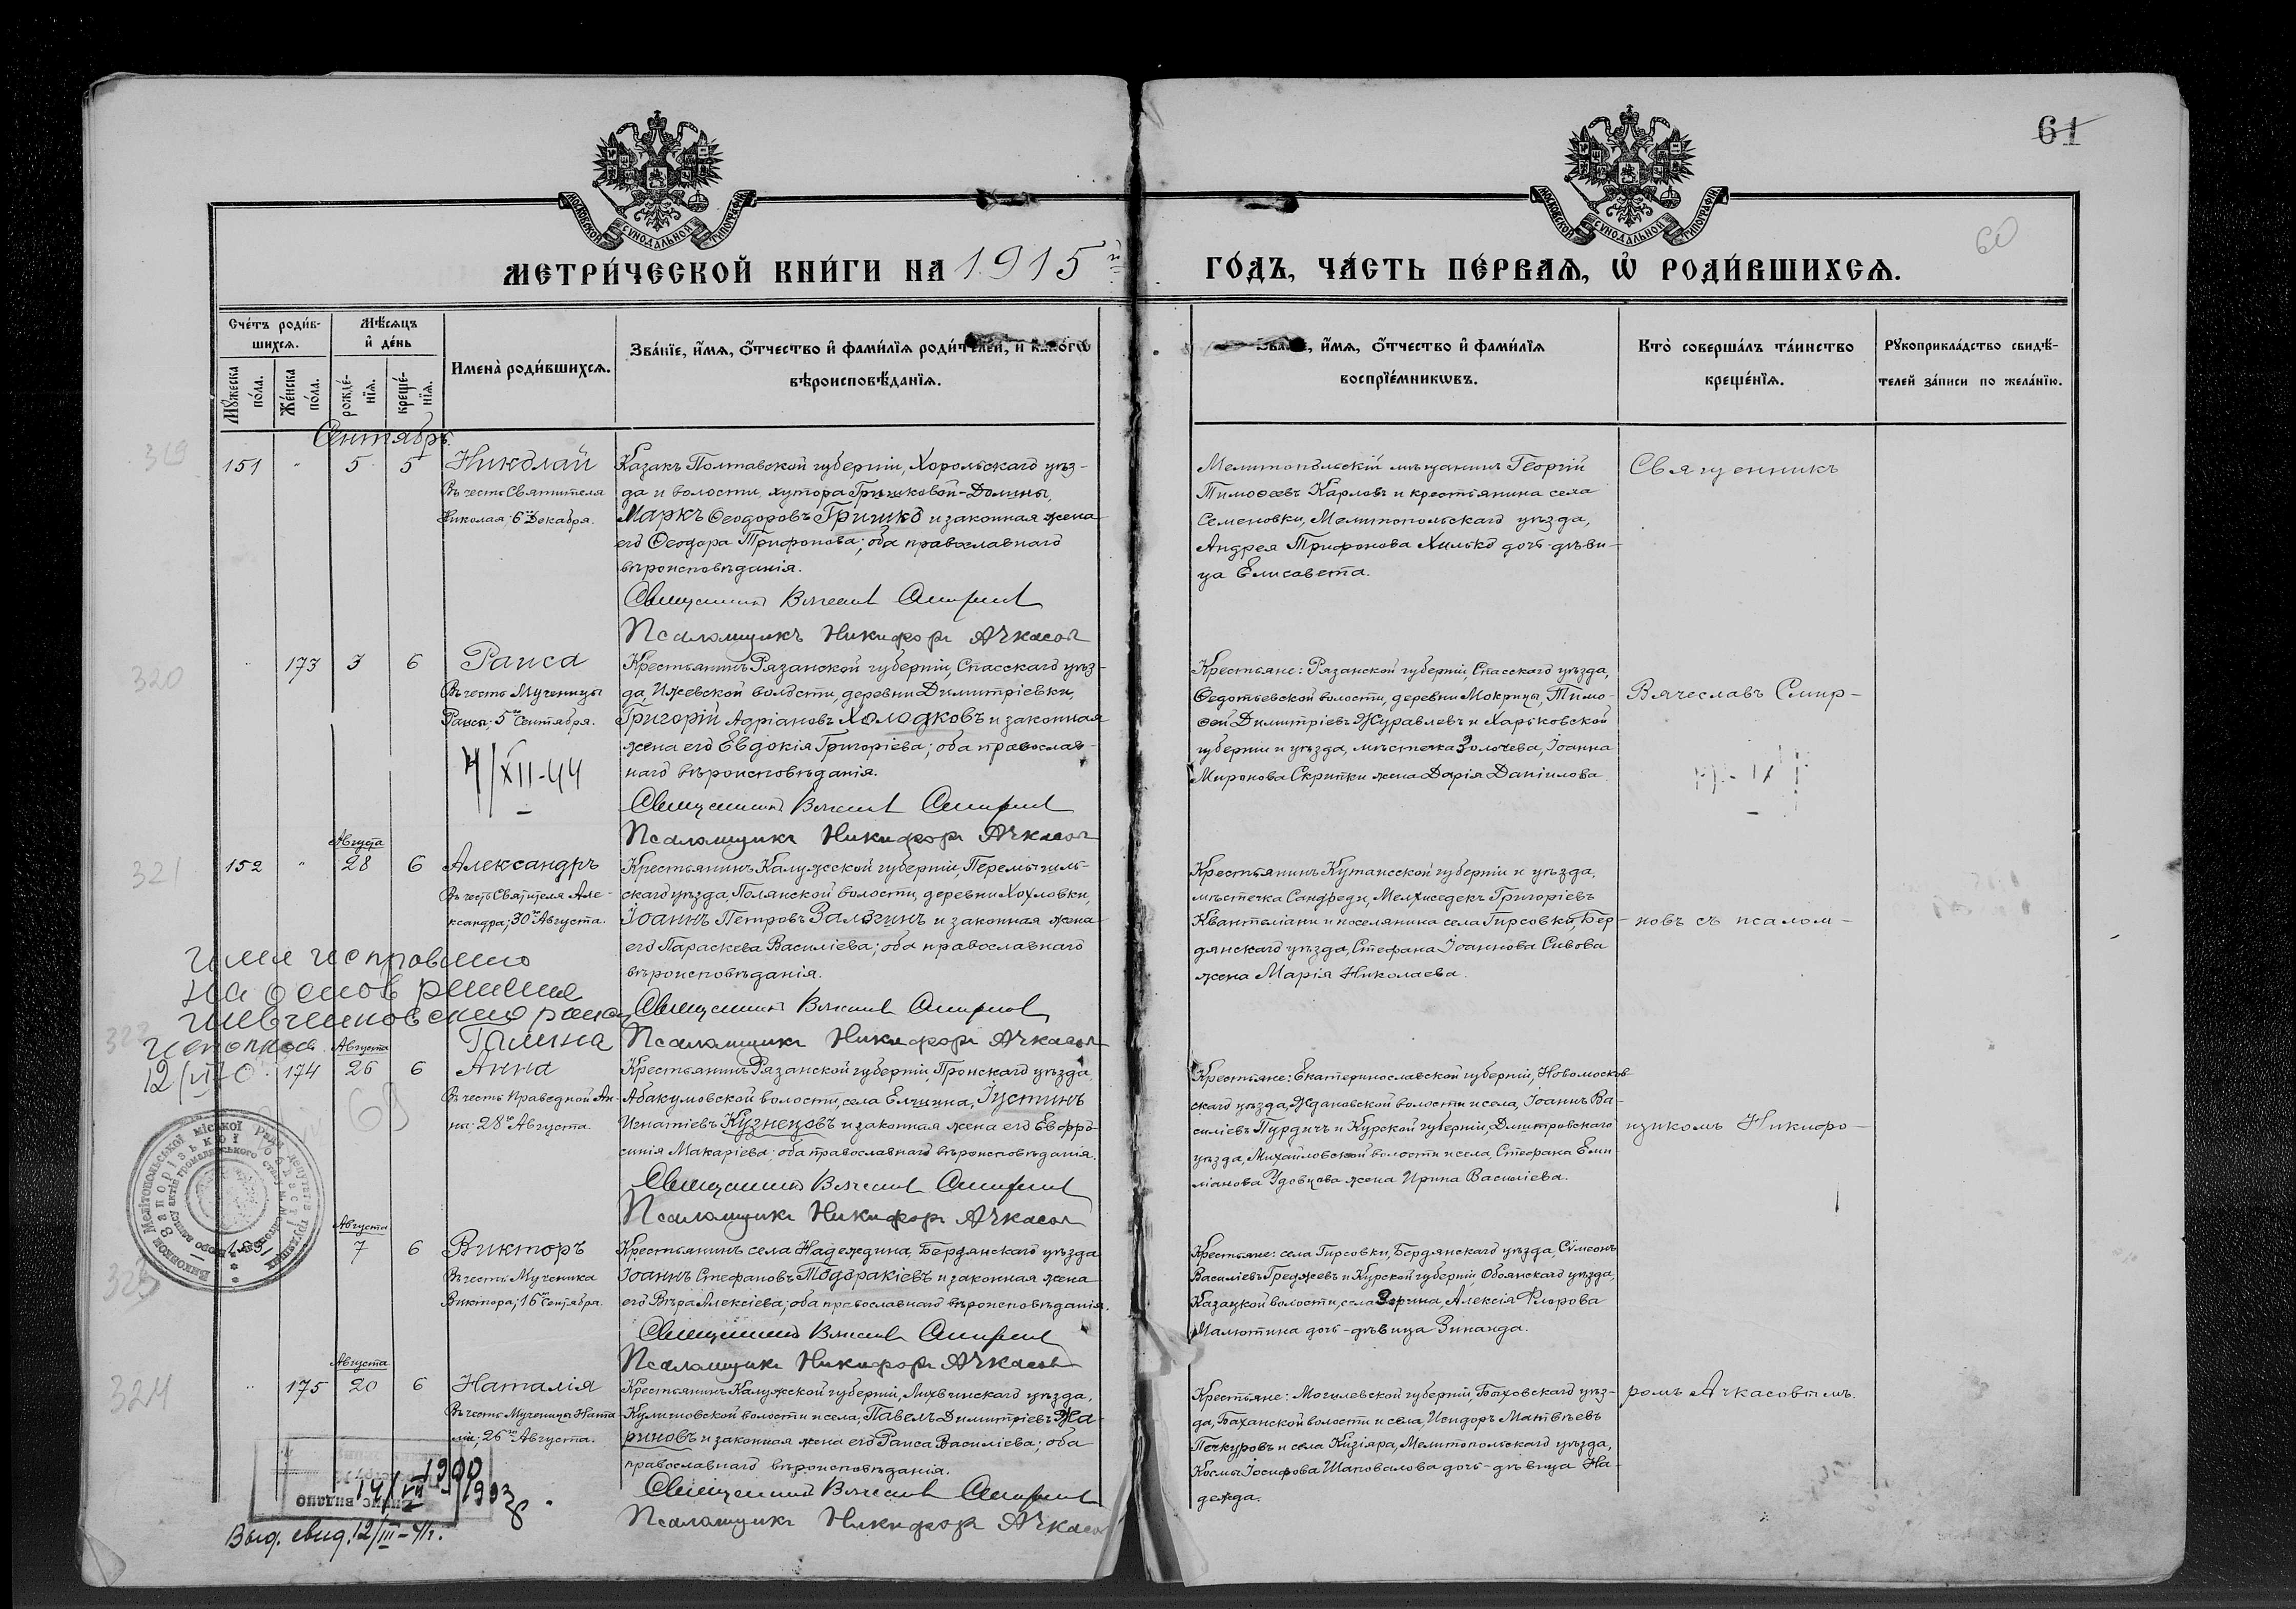 61
60
МОСКОВСКОЙ СѴНОДАЛЬНОЙ ТИПОГРАФІИ
МОСКОВСКОЙ СѴНОДАЛЬНОЙ ТИПОГРАФІИ
МЕТРИ́ЧЕСКОЙ КНИ́ГИ НА 1915й
ГО́ДЪ, ЧА́СТЬ ПЕ́РВАѦ, Ѡ҆ РОДИ́ВШИХСѦ.
Сче́тъ роди́в-
шихсѧ.
Мѣ́сѧцъ
и҆ де́нь
Мꙋ́жеска по́ла.
Же́нска по́ла.
рожде́-
нїѧ.
креще́-
нїѧ.
Имена̀ роди́вшихсѧ.
Зва́нїе, и҆́мѧ, ѻ҆́тчество и҆ фами́лїѧ роди́телей, и҆ како́гѡ
вѣроисповѣ́данїѧ.
Зва́нїе, и҆́мѧ, ѻ҆́тчество и҆ фами́лїѧ
воспрїе́мникѡвъ.
Кто̀ соверша́лъ та́инство
креще́нїѧ.
Рꙋкоприкла́дство свидѣ́-
телей за́писи по жела́нїю.
Сентябрь.
319
151 " 5 5 Николай
Въ честь Святителя
Николая; 6го Декабря.
Казакъ Полтавской губерніи, Хорольскаго уѣз-
да и волости, хутора Гришковой-Долины,
Маркъ Ѳеодоровъ Гришко и законная жена
его Ѳеодора Трифонова; оба православнаго
вѣроисповѣданія.
Священникъ Вячеслав Смирнов
Псаломщикъ Никифоръ Ачкасов
Мелитопольскій мѣщанинъ Георгій
Тимоѳеевъ Карловъ и крестьянина села
Семеновки, Мелитопольскаго уѣзда,
Андрея Трифонова Хилько дочь-дѣви-
ца Елисавета.
Священникъ
320
" 173 3 6 Раиса
Въ честь Мученицы
Раисы; 5го Сентября.
4/XII-44
Крестьянинъ Рязанской губерніи, Спасскаго уѣз-
да, Ижевской волости, деревни Димитріевки,
Григорій Адріановъ Холодковъ и законная
жена его Евдокія Григоріева; оба православ-
наго вѣроисповѣданія.
Священникъ Вячеслав Смирнов
Псаломщикъ Никифоръ Ачкасов
Крестьяне: Рязанской губерніи, Спасскаго уѣзда,
Ѳедотьевской волости, деревни Мокрицы, Тимо-
ѳей Димитріевъ Журавлевъ и Харьковской
губерніи и уѣзда, мѣстечка Золочева, Іоанна
Миронова Скрипки жена Дарія Даніилова.
Вячеславъ Смир-
321
Августа
152 " 28 6 Александръ
Въ честь Святителя Але-
ксандра; 30го Августа.
Крестьянинъ Калужской губерніи, Перемышль-
скаго уѣзда, Полянской волости, деревни Хохловки,
Іоаннъ Петровъ Зальгинъ и законная жена
его Параскева Василіева; оба православнаго
вѣроисповѣданія.
Священникъ Вячеслав Смирнов
Псаломщикъ Никифоръ Ачкасов
Крестьянинъ Кутаисской губерніи и уѣзда,
мѣстечка Санфреди, Мелхиседекъ Григоріевъ
Квантеліани и поселянина села Гирсовки, Бер-
дянскаго уѣзда, Стефана Іоаннова Сивова
жена Марія Николаева.
новъ съ псалом-
имя исправлено
на основ решения
Шевченковского район
исполкома
12/VI-70
322
Августа
Галина
" 174 26 6 Анна
Въ честь Праведной Ан-
ны; 28го Августа.
Крестьянинъ Рязанской губерніи, Пронскаго уѣзда,
Абакумовской волости, села Елшина, Іустинъ
Игнатіевъ Кузнецовъ и законная жена его Евфро-
синія Макаріева; оба православнаго вѣроисповѣданія.
Священникъ Вячеслав Смирнов
Псаломщикъ Никифоръ Ачкасов
Крестьяне: Екатеринославской губерніи, Новомосков-
скаго уѣзда, Ждановской волости и села, Іоаннъ Ва-
силіевъ Пурдичъ и Курской губерніи, Дмитровскаго
уѣзда, Михайловской волости и села, Стефана Еми-
ліанова Удовцова жена Ирина Василіева.
щикомъ Никифо-
323
Августа
7 6 Викторъ
Въ честь Мученика
Виктора; 16го Сентября.
Крестьянинъ села Надеждина, Бердянскаго уѣзда
Іоаннъ Стефановъ Тодоракіевъ и законная жена
его Вѣра Алексіева; оба православнаго вѣроисповѣданія.
Священникъ Вячеслав Смирнов
Псаломщикъ Никифоръ Ачкасов
Крестьяне: села Гирсовки, Бердянскаго уѣзда, Сѵмеонъ
Василіевъ Греджевъ и Курской губерніи, Обоянскаго уѣзда,
Казацкой волости, села Зорина, Алексія Флорова
Малютина дочь-дѣвица Зинаида.
324
Августа
" 175 20 6 Наталія
Въ честь Мученицы Ната-
ліи; 26го Августа.
Крестьянинъ Калужской губерніи, Лихвинскаго уѣзда,
Кулешовской волости и села, Павелъ Димитріевъ Жа-
риновъ и законная жена его Раиса Василіева; оба
православнаго вѣроисповѣданія.
Священникъ Вячеслав Смирнов
Псаломщикъ Никифоръ Ачкасов
Крестьяне: Могилевской губерніи, Быховскаго уѣз-
да, Баханской волости и села, Исидоръ Матвѣевъ
Печкуровъ и села Кизіяра, Мелитопольскаго уѣзда,
Космы Іосифова Шаповалова дочь-дѣвица На-
дежда.
ромъ Ачкасовымъ.
Выд. свид. 12/III-41г.